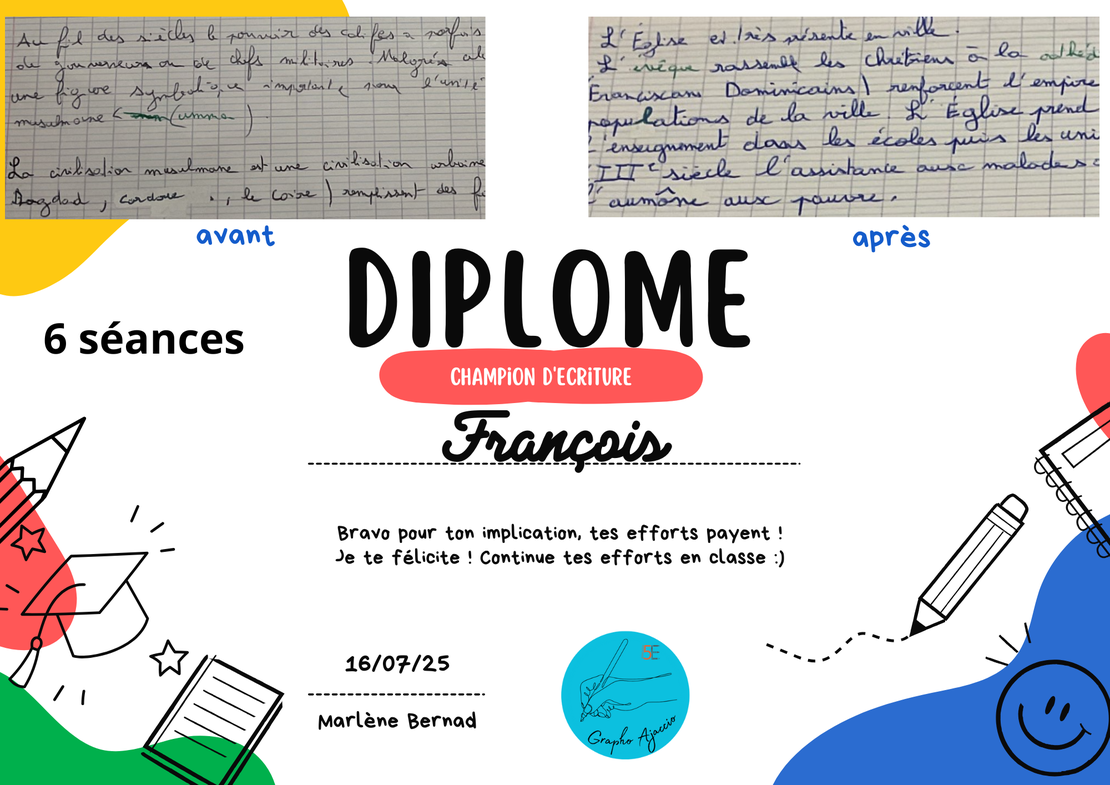 Au fil des siècles le pouvoir des califes a parfois
de gouverneurs ou de chefs militaires Malgrés
une figure symbolique importante pour l'unité
musulmane (umma)
La civilisation musulmane est une civilisation urbaine
Bagdad, cordoue ., le Caire) remplissent des
avant
L'Église est très présente en ville.
L'évêque rassemble les chrétiens à la cathéd
Franciscans Dominicains) renforcent l'empire
populations de la ville. L'Église prend
l'enseignement dans les écoles puis les uni
IIIe siècle l'assistance aux malades
l'aumône aux pauvre.
après
DIPLOME
6 séances
CHAMPION D'ECRITURE
François
Bravo pour ton implication, tes efforts payent !
Je te félicite ! Continue tes efforts en classe :)
16/07/25
Marlène Bernad
5E
Grapho Ajaccio